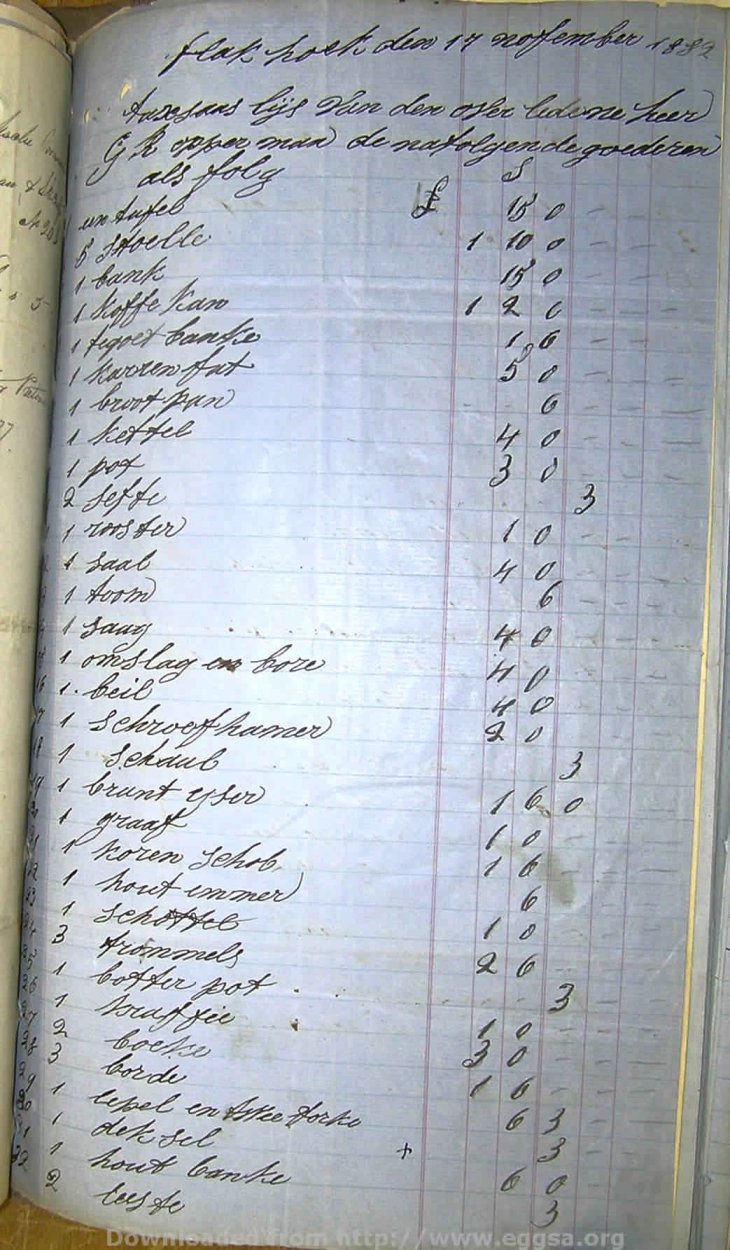 flak hoek den 17 nofember 1882
taxsaas lijs Van den oser ledene heer
G R opperman de nafolgende goederen
als folg
£ S
1 un tafel 15 0 - -
5 stoelle 1 10 0 - -
1 bank 15 0 - -
1 koffe kan 1 2 0 - -
1 tegoet banke 1 6 - -
1 karren fat 5 0 - -
1 broot pan 6 - -
1 kettel 4 0 - -
1 pot 3 0 - -
2 seffe 3
1 rooster 1 0 - -
1 saal 4 0 - -
1 toom 6 - -
1 saag 4 0 - -
1 omslag en bore 4 0 - -
1 beil 4 0 - -
1 schroefhamer 2 0 - -
1 schaal 3
1 brant yser 1 6 0
1 graaf 1 0
1 koren schob 1 6
1 hout emmer 6
1 schottel 1 0
3 trommels 2 6
1 botter pot 3
1 kraffie 1 0
2 boeke 3 0
3 borde 1 6
1 lepel en forke 6 3
1 dek sel + 3
1 hout banke 6 0
2 leeste 3
Downloaded from http://www.eggsa.org